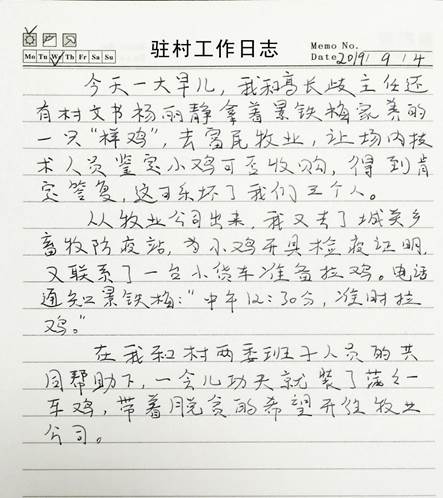 驻村工作日志
Memo No.
Mo Tu We Th Fr Sa Su
Date 2019 9 4
今天一大早儿，我和高长歧主任还
有村文书杨丽静拿着景铁梅家养的
一只“样鸡”，去富民牧业，让场内技
术人员鉴定小鸡可否收购，得到肯
定答复，这可乐坏了我们三个人。
从牧业公司出来，我又去了城关乡
畜牧防疫站，为小鸡开具检疫证明，
又联系了一台小货车准备拉鸡。电话
通知景铁梅：“中午12:30分，准时拉
鸡。”
在我和村两委班子人员的共
同帮助下，一会儿功夫就装了满满一
车鸡，带着脱贫的希望开往牧业
公司。